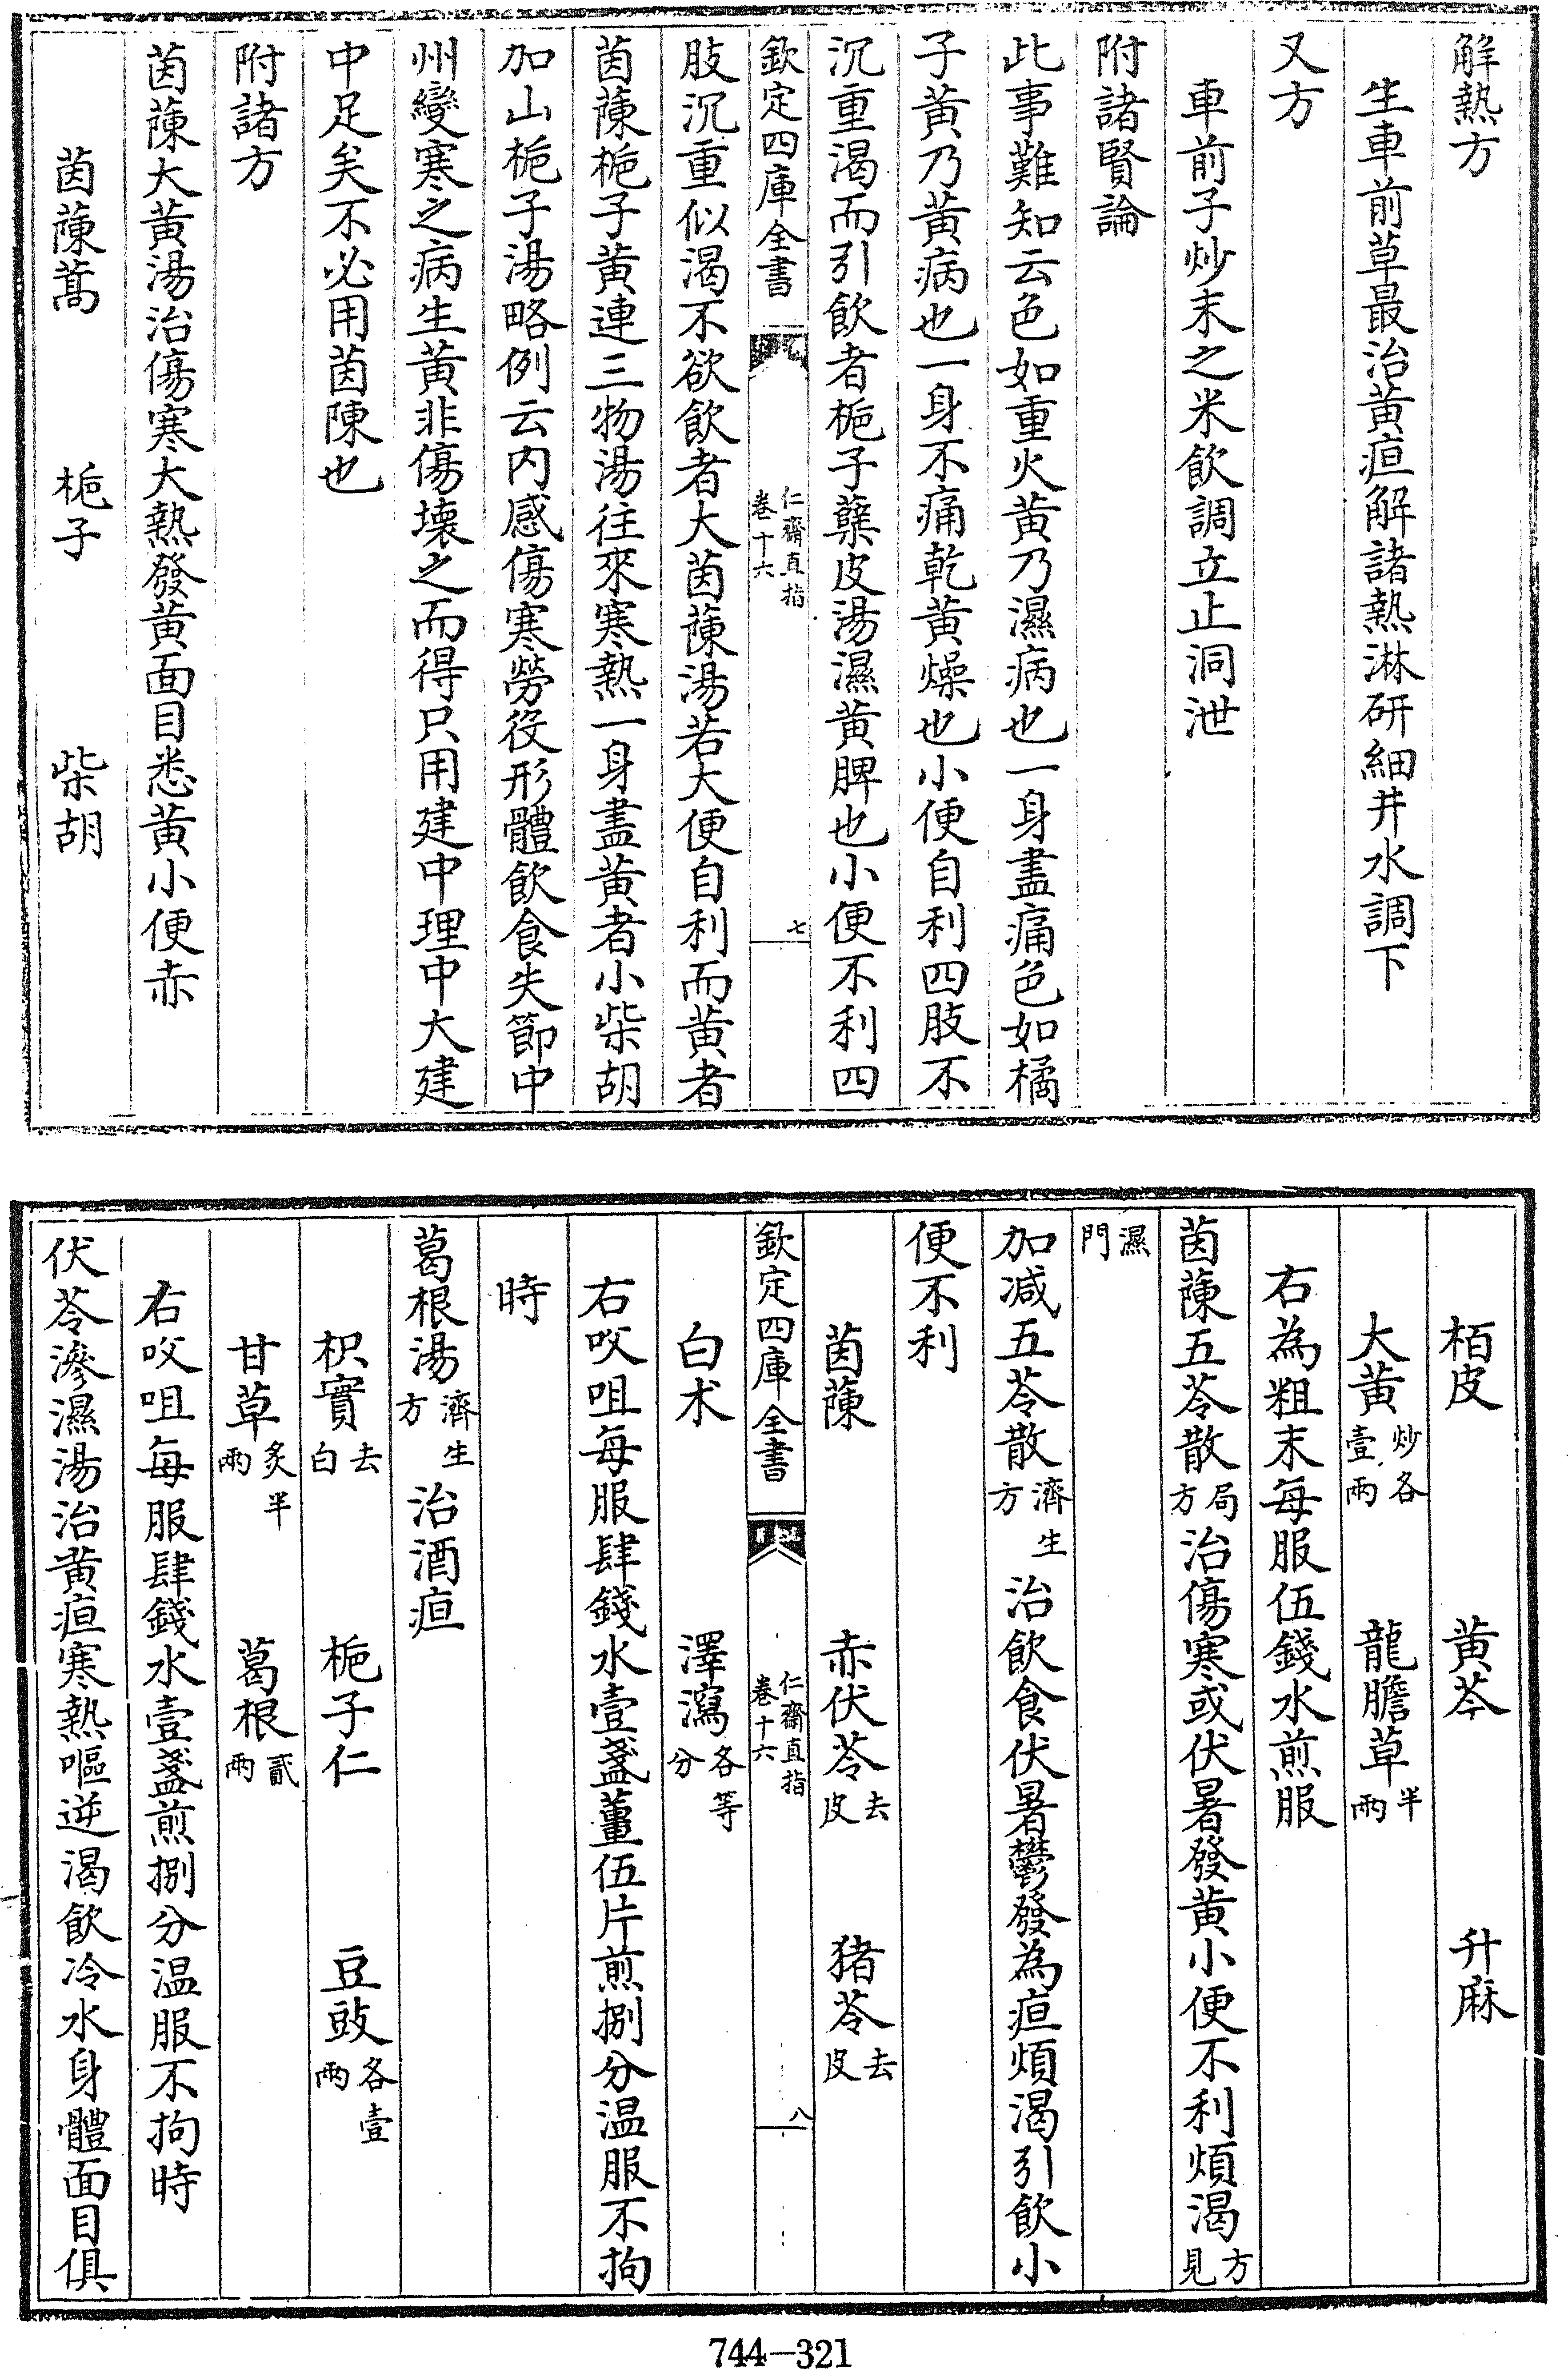 解熱方
生車前草最治黄疸解諸熱淋研細井水調下
又方
車前子炒末之米飲調立止洞泄
附諸賢論
此事難知云色如重火黄乃濕病也一身盡痛色如橘
子黄乃黄病也一身不痛乾黄燥也小便自利四肢不
沉重渴而引飲者梔子蘗皮湯濕黄脾也小便不利四
欽定四庫全書
仁齋直指
卷十六
七
肢沉重似渴不欲飲者大茵蔯湯若大便自利而黄者
茵蔯梔子黄連三物湯往來寒熱一身盡黄者小柴胡
加山梔子湯略例云内感傷寒勞役形體飲食失節中
州變寒之病生黄非傷壞之而得只用建中理中大建
中足矣不必用茵陳也
附諸方
茵蔯大黄湯治傷寒大熱發黄面目悉黄小便赤
茵蔯蒿 梔子 柴胡
栢皮 黄芩 升麻
大黄炒各壹兩 龍膽草半兩
右為粗末每服伍錢水煎服
茵蔯五苓散局方治傷寒或伏暑發黄小便不利煩渴方見
濕門
加減五苓散濟生方治飲食伏暑鬱發為疸煩渴引飲小
便不利
茵蔯 赤伏苓去皮 猪苓去皮
欽定四庫全書
仁齋直指
卷十六
八
白术 澤瀉各等分
右㕮咀每服肆錢水壹盞薑伍片煎捌分温服不拘
時
葛根湯濟生方治酒疸
枳實去白 梔子仁 豆豉各壹兩
甘草炙半兩 葛根貳兩
右㕮咀每服肆錢水壹盞煎捌分温服不拘時
伏苓滲濕湯治黄疸寒熱嘔逆渴飲冷水身體面目俱
744-321